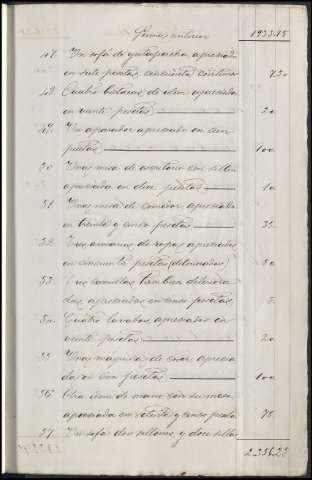 Suma anterior 1933.15
47. Un sofá de gutapercha apreciado
en siete pesetas, cincuenta céntimos 7.50
48. Cuatro butacas de idem apreciadas
en veinte pesetas 20
49. Un aparador apreciado en cien
pesetas 100
50. Una mesa de escritorio con sillon
apreciada en diez pesetas 10
51. Una mesa de comedor apreciada
en treinta y cinco pesetas 35
52. Tres armarios de ropas apreciados
en cincuenta pesetas (deteriorados) 50
53. Tres camillas tambien deteriora
das apreciadas en cinco pesetas. 5.
54. Cuatro lavabos apreciados en
veinte pesetas 20
55 Una maquina de coser aprecia
da en cien pesetas 100
56. Otra idem de mano con su mesa
apreciada en setenta y cinco pesetas 75
57. Un sofá dos sillones y doce sillas
2356.25